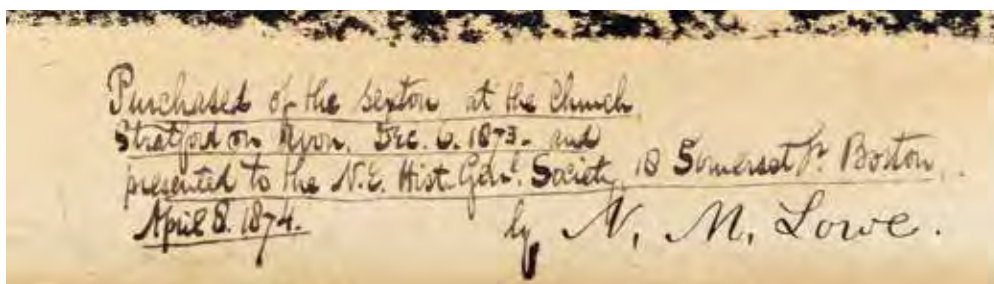 Purchased of the sexton, at the Church,
Stratford on Avon, Dec. 6. 1873. and
presented to the N.E. Hist. Genl. Society, 18 Somerset St. Boston,.
April 8. 1874. by N. M. Lowe.